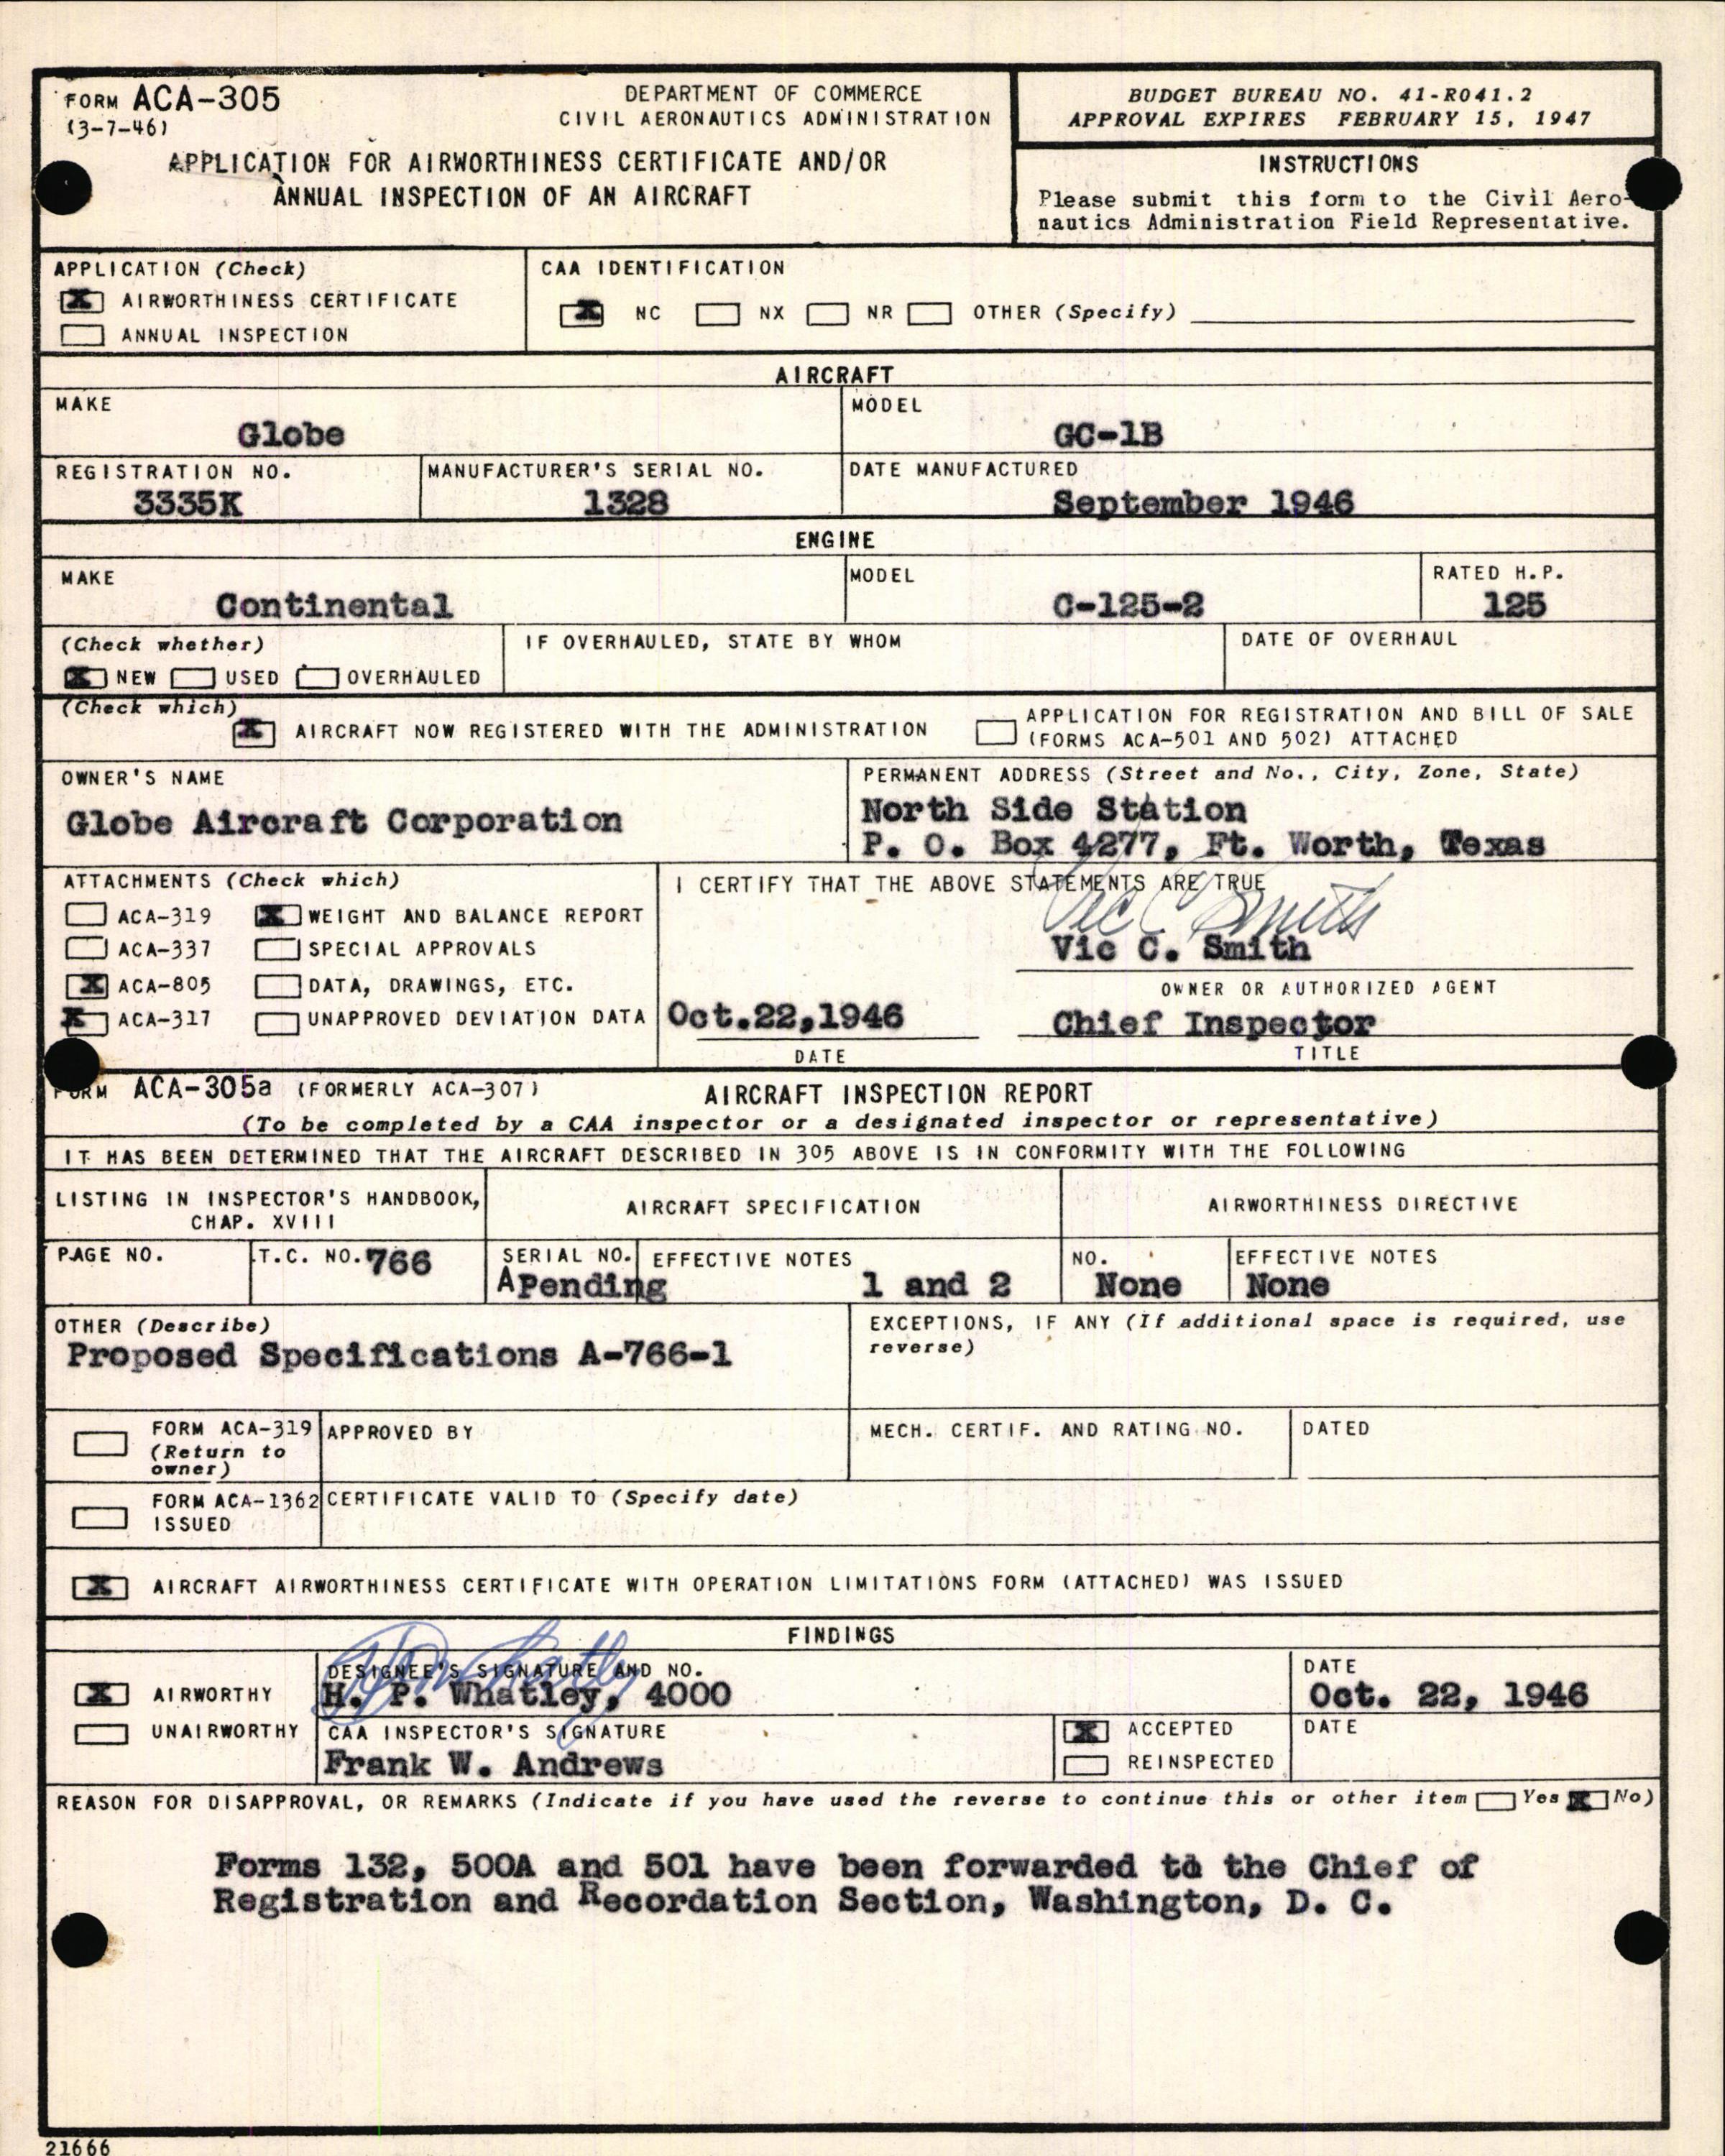 FORM ACA-305
(3-7-46)
DEPARTMENT OF COMMERCE
CIVIL AERONAUTICS ADMINISTRATION
APPLICATION FOR AIRWORTHINESS CERTIFICATE AND/OR
ANNUAL INSPECTION OF AN AIRCRAFT
BUDGET BUREAU NO. 41-R041.2
APPROVAL EXPIRES FEBRUARY 15, 1947
INSTRUCTIONS
Please submit this form to the Civil Aero-
nautics Administration Field Representative.
APPLICATION (Check)
X AIRWORTHINESS CERTIFICATE
ANNUAL INSPECTION
CAA IDENTIFICATION
X NC NX NR OTHER (Specify)
AIRCRAFT
MAKE
Globe
MODEL
GC-1B
REGISTRATION NO.
3335K
MANUFACTURER'S SERIAL NO.
1328
DATE MANUFACTURED
September 1946
ENGINE
MAKE
Continental
MODEL
C-125-2
RATED H.P.
125
(Check whether)
X NEW USED OVERHAULED
IF OVERHAULED, STATE BY WHOM
DATE OF OVERHAUL
(Check which)
X AIRCRAFT NOW REGISTERED WITH THE ADMINISTRATION
APPLICATION FOR REGISTRATION AND BILL OF SALE
(FORMS ACA-501 AND 502) ATTACHED
OWNER'S NAME
Globe Aircraft Corporation
PERMANENT ADDRESS (Street and No., City, Zone, State)
North Side Station
P. O. Box 4277, Ft. Worth, Texas
ATTACHMENTS (Check which)
ACA-319 X WEIGHT AND BALANCE REPORT
ACA-337 SPECIAL APPROVALS
X ACA-805 DATA, DRAWINGS, ETC.
X ACA-317 UNAPPROVED DEVIATION DATA
I CERTIFY THAT THE ABOVE STATEMENTS ARE TRUE
Vic C Smith
Vic C. Smith
OWNER OR AUTHORIZED AGENT
Oct.22,1946
DATE
Chief Inspector
TITLE
FORM ACA-305a (FORMERLY ACA-307)
AIRCRAFT INSPECTION REPORT
(To be completed by a CAA inspector or a designated inspector or representative)
IT HAS BEEN DETERMINED THAT THE AIRCRAFT DESCRIBED IN 305 ABOVE IS IN CONFORMITY WITH THE FOLLOWING
LISTING IN INSPECTOR'S HANDBOOK,
CHAP. XVIII
AIRCRAFT SPECIFICATION
AIRWORTHINESS DIRECTIVE
PAGE NO.
T.C. NO. 766
SERIAL NO.
A Pending
EFFECTIVE NOTES
1 and 2
NO.
None
EFFECTIVE NOTES
None
OTHER (Describe)
Proposed Specifications A-766-1
EXCEPTIONS, IF ANY (If additional space is required, use
reverse)
FORM ACA-319
(Return to
owner)
APPROVED BY
MECH. CERTIF. AND RATING NO.
DATED
FORM ACA-1362
ISSUED
CERTIFICATE VALID TO (Specify date)
X AIRCRAFT AIRWORTHINESS CERTIFICATE WITH OPERATION LIMITATIONS FORM (ATTACHED) WAS ISSUED
FINDINGS
X AIRWORTHY
UNAIRWORTHY
DESIGNEE'S SIGNATURE AND NO.
H. P. Whatley, 4000
DATE
Oct. 22, 1946
CAA INSPECTOR'S SIGNATURE
Frank W. Andrews
X ACCEPTED
REINSPECTED
DATE
REASON FOR DISAPPROVAL, OR REMARKS (Indicate if you have used the reverse to continue this or other item Yes X No)
Forms 132, 500A and 501 have been forwarded to the Chief of
Registration and Recordation Section, Washington, D. C.
21666